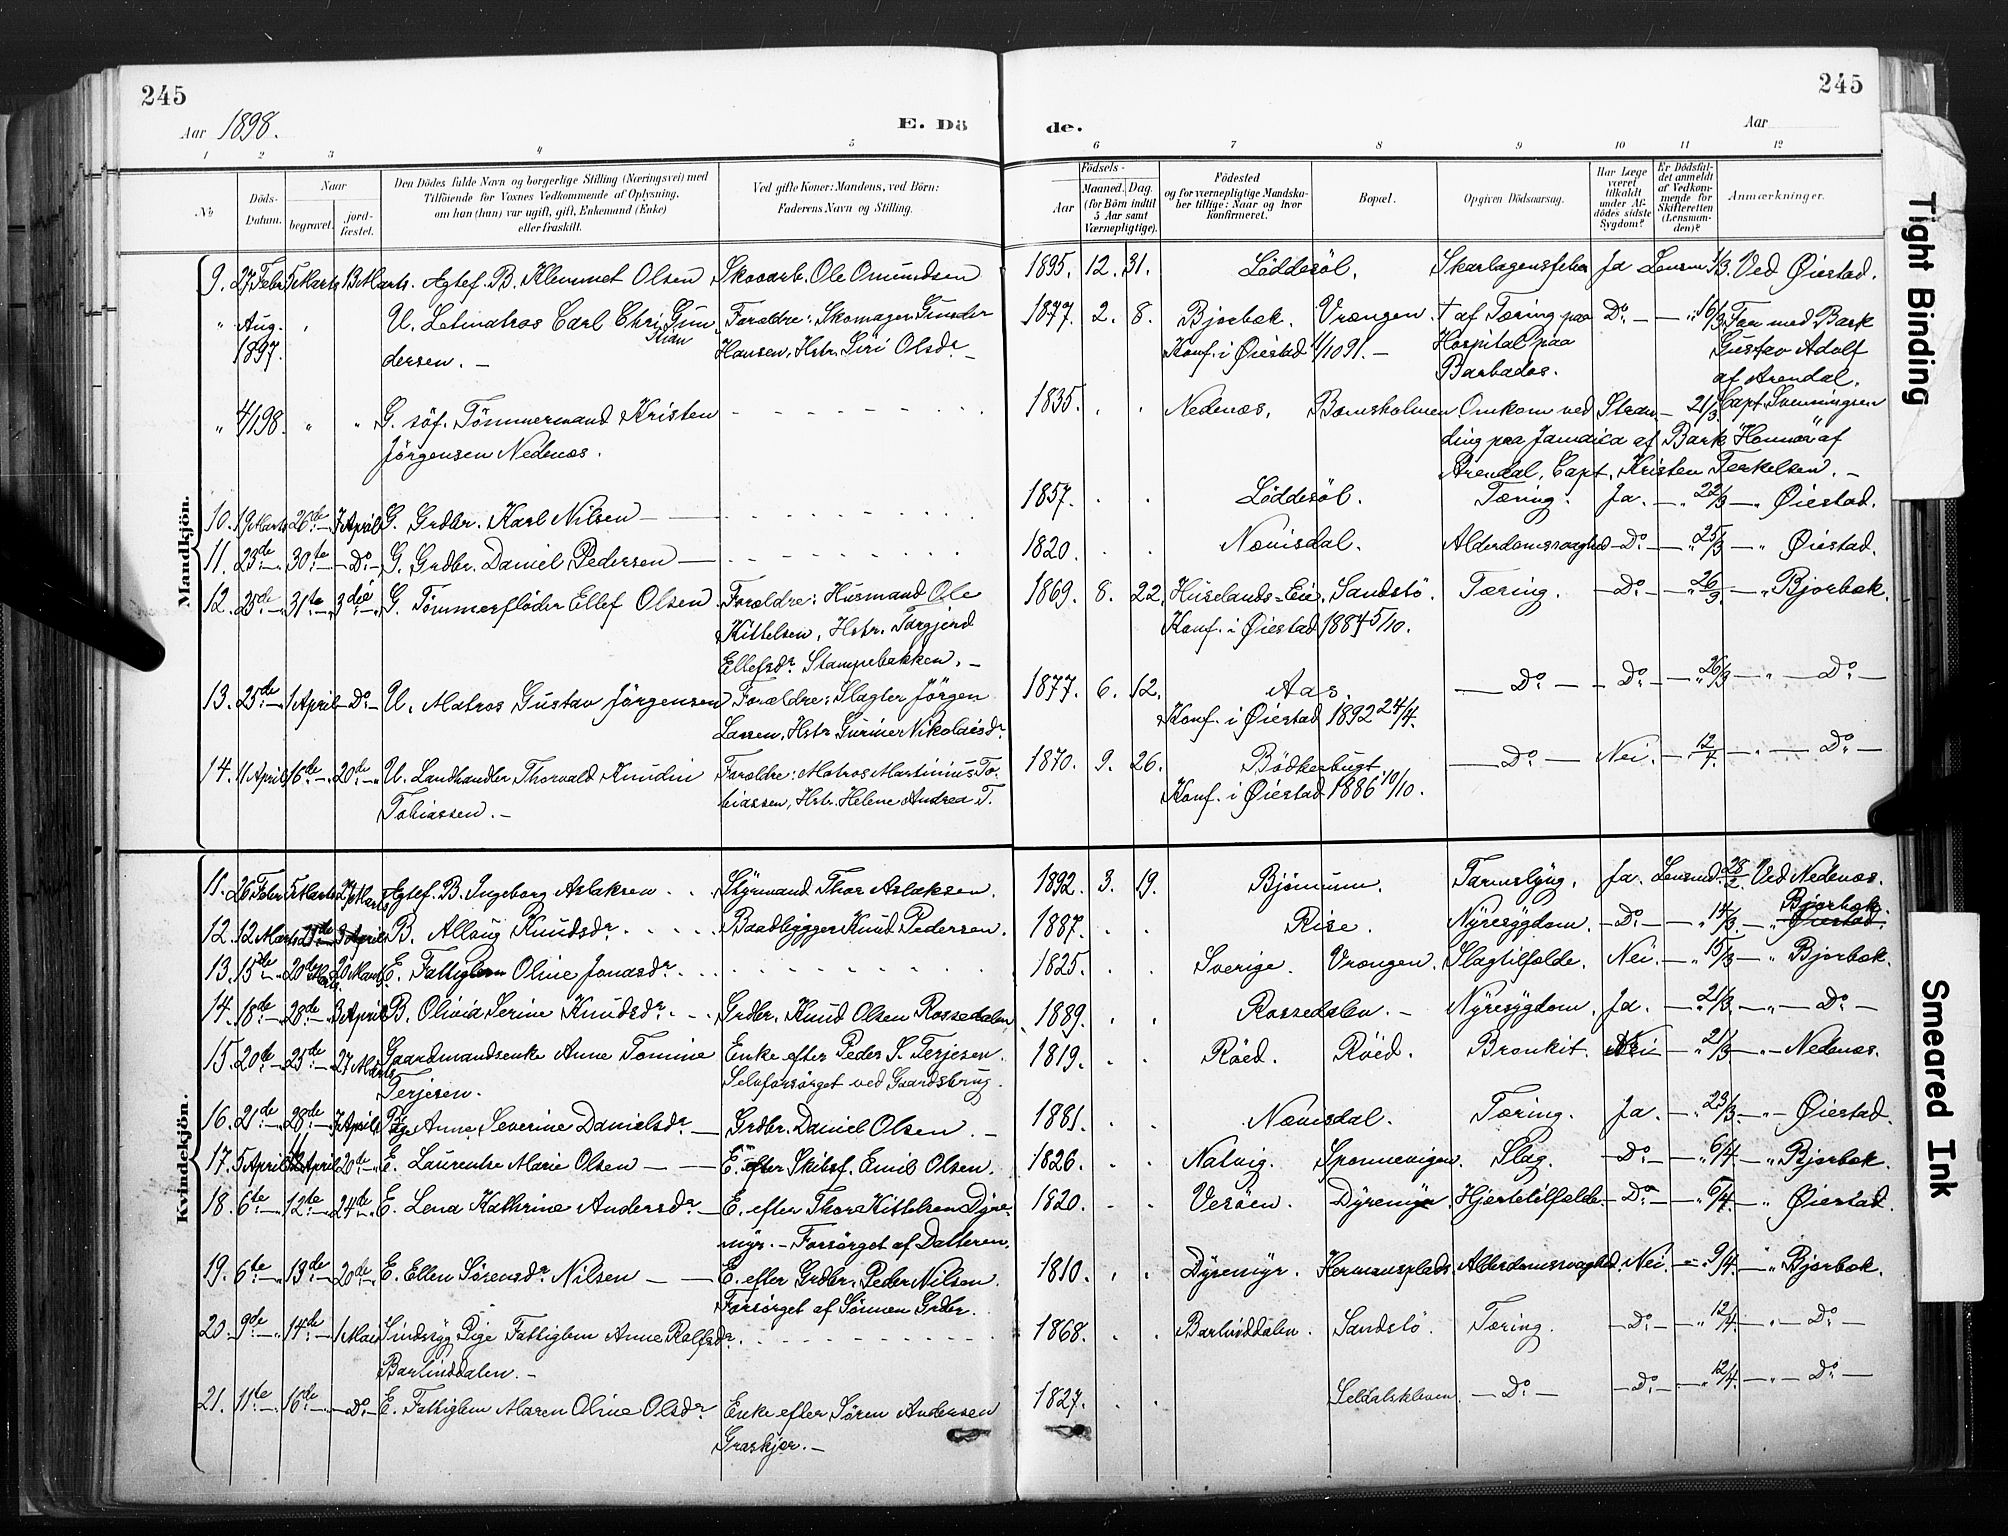 245
245
Aar 1898.
E. Dö
de.
Aar
1 2 3 4 5 6 7 8 9 10 11 12
№ Döds-Datum. Naar begravet. jordfæstet. Den Dödes fulde Navn og borgerlige Stilling (Næringsvei) med Tilföiende for Voxnes Vedkommende af Oplysning, om han (hun) var ugift, gift, Enkemand (Enke) eller fraskilt. Ved gifte Koner: Mandens, ved Börn: Faderens Navn og Stilling. Födsels- Aar Maaned. Dag. (for Börn indtil 5 Aar samt Værnepligtige). Födested og for værnepligtige Mandskaber tillige: Naar og hvor konfirmeret. Bopæl. Opgiven Dödsaarsag. Har Læge været tilkaldt under Afdödes sidste Sygdom? Er Dödsfaldet anmeldt af Vedkommende for Skifteretten (Lensmanden)? Anmærkninger.
Mandkjön.
9. 27 Febr. 5 Marts 13 Marts. Ægtef. B. Klemmet Olsen Skovarb. Ole Omundsen 1895. 12. 31. Löddesöl. Skarlagensfeber Ja Lensm 1/3. Ved Øiestad.
" Aug. " U. Letmatros Carl Chri Gun Forældre: Skomager Gunder 1877. 2. 8. Bjorbæk. Vrængen. † af Tæring paa Do. — " 16/3 Foer med Bark
1897. stian Hansen, Hstr. Siri Olsdr. — Konf. i Øiestad 4/10 91. — Hospital paa Gustav Adolf
dersen. — Barbados. af Arendal.
" 4/1 98. " " G. söf. Tömmermand Kristen - - - - - 1835. . . Nedenæs. Bamsholmen. Omkom ved Stran — 21/3. Capt. Svenningsen
Jörgensen Nedenæs. ding paa Jamaica af Bark "Honnør" af
Arendal, Capt. Kristen Terkelsen. —
10. 19 Marts 26de 7 April G. Grdbr. Karl Nilsen — - - - - 1857. . . Löddesöl. Tæring. Ja. — 22/3 — " Øiestad.
11. 23de — 30te — Do. G. Grdbr. Daniel Pedersen — - - - - 1820. . . Nævisdal. Alderdomssvaghed — Do. — " 25/3 — " Øiestad.
12. 25de 31te 3die G. Tömmerflöder Ellef Olsen Forældre: Husmand Ole 1869. 8. 22. Huselands-Eie. Sandstö. Tæring. — Do. — " 26/3. — " Bjorbæk.
Kittelsen, Hstr. Torgjerd Konf. i Øiestad 1884 5/10.
Ellefsdr. Stampebakken. —
13. 25de 1 April — Do. U. Matros Gustav Jörgensen Forældre: Slagter Jörgen 1877. 6. 12. Aas. — Do. — — Do. — " 26/3 — " — Do. —
Lassen, Hstr. Gurine Nikolaisdr. Konf. i Øiestad 1892 24/4.
14. 11 April 16de — 20de U. Landhandler Thorvald Knudin Forældre: Matros Martinius To- 1870. 9. 26. Bödkerbugt — Do. — Nei. — 12/4. — " — Do. —
Tobiassen. — biassen, Hstr. Helene Andrea T. Konf. i Øiestad 1886 10/10.
Kvindekjön.
11. 26 Febr. 5 Marts 27 Marts Ægtef. B. Ingeborg Aslaksen . . Styrmand Thor Aslaksen. 1892. 3. 19. Bjömum. Tarmslyng. Ja. Lensmd. 28/2. Ved Nedenæs.
12. 12 Marts 21de 3 April B. Allaug Knudsdr. . . . . Baadbygger Knud Pedersen. 1887. . . Rise. Nyresygdom. — Do. — " 14/3 — " Bjorbæk. Øiestad.
13. 15de — 20de Marts 20 Marts E. Fattiglem Oline Jonasdr. . . . . 1825. . . Sverige. Vrængen. Slagtilfælde. Nei. — " 15/3 — " Bjorbæk.
14. 18de 28de 3 April B. Olivia Serine Knudsdr. . . Grdbr. Knud Olsen Rossedalen. 1889. . . Rossedalen. — Nyresygdom. Ja. — " 21/3. — " — Do. —
15. 20de 25de — 27 Marts Gaardmandsenke Anne Tomine Enke efter Peder S. Terjesen. 1819. . . Röed. Röed. Bronkit. Nei — " 21/3 — " — Nedenæs.
Terjesen. Selvforsörget ved Gaardsbrug.
16. 21de 28de 7 April Pige Anne Severine Danielsdr. — Grdbr. Daniel Olsen. — 1881. . . Nævisdal. Tæring. Ja. — " 23/3 — " — Øiestad.
17. 5 April 12 April 20de E. Laurentse Marie Olsen — — E. efter Skibsf. Emil Olsen. 1826. . . Natvig. Spornevigen. Slag. — Do. — " 6/4 — " Bjorbæk.
18. 6te — 12te 24de E. Lena Kathrine Andersdr. — E. efter Thor Kittelsen Dyre- 1820. . . Vesöen. Dyremyr Hjertetilfælde. — Do. — " 6/4. — " Øiestad.
myr. — Forsörget af Datteren.
19. 6te — 13de 20de E. Ellen Sörensdr. Nilsen — — E. efter Grdbr. Peder Nilsen. 1810. . . Dyremyr. Hermansplads. Alderdomssvaghed. Nei. — " 9/4 — " Bjorbæk.
Forsörget af Sönnen Grdbr.
20. 9de — 14de — 1 Mai Sindssyg Pige Fattiglem Anne Rolfsdr. . . . . 1868. . . Barlinddalen. Sandstö. Tæring. — Do. — " 12/4. — " — Do. —
Barlinddalen. —
21. 11te — 16de — Do. E. Fattiglem Maren Oline Olsdr. Enke efter Sören Andersen 1827. . . Seldalskleven. — Do. — — Do. — " 12/4. — " — Do. —
Græskjer. —
Tight Binding
Smeared Ink